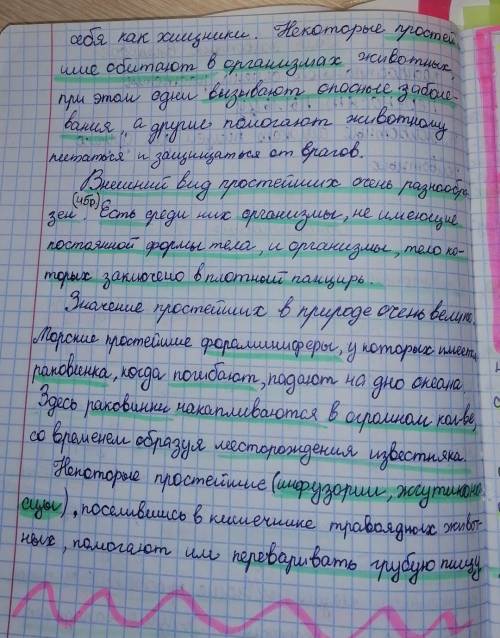 себя как хищники. Некоторые простей
шие обитают в организмах животных,
при этом одни вызывают опасные заболе-
вания, а другие помогают животному
питаться и защищаться от врагов.
Внешний вид простейших очень разнообра-
зен. (ЧБО) Есть среди них организмы, не имеющие
постоянной формы тела, и организмы, тело ко-
торых заключено в плотный панцирь.
Значение простейших в природе очень велико.
Морские простейшие фораминиферы, у которых имеется
раковинка, когда погибают, падают на дно океана.
Здесь раковинки накапливаются в огромном кол-ве,
со временем образуя месторождения известняка.
Некоторые простейшие (инфузории, жгутиконо
сцы), поселившись в кишечнике травоядных живот-
ных, помогают им переваривать грубую пищу